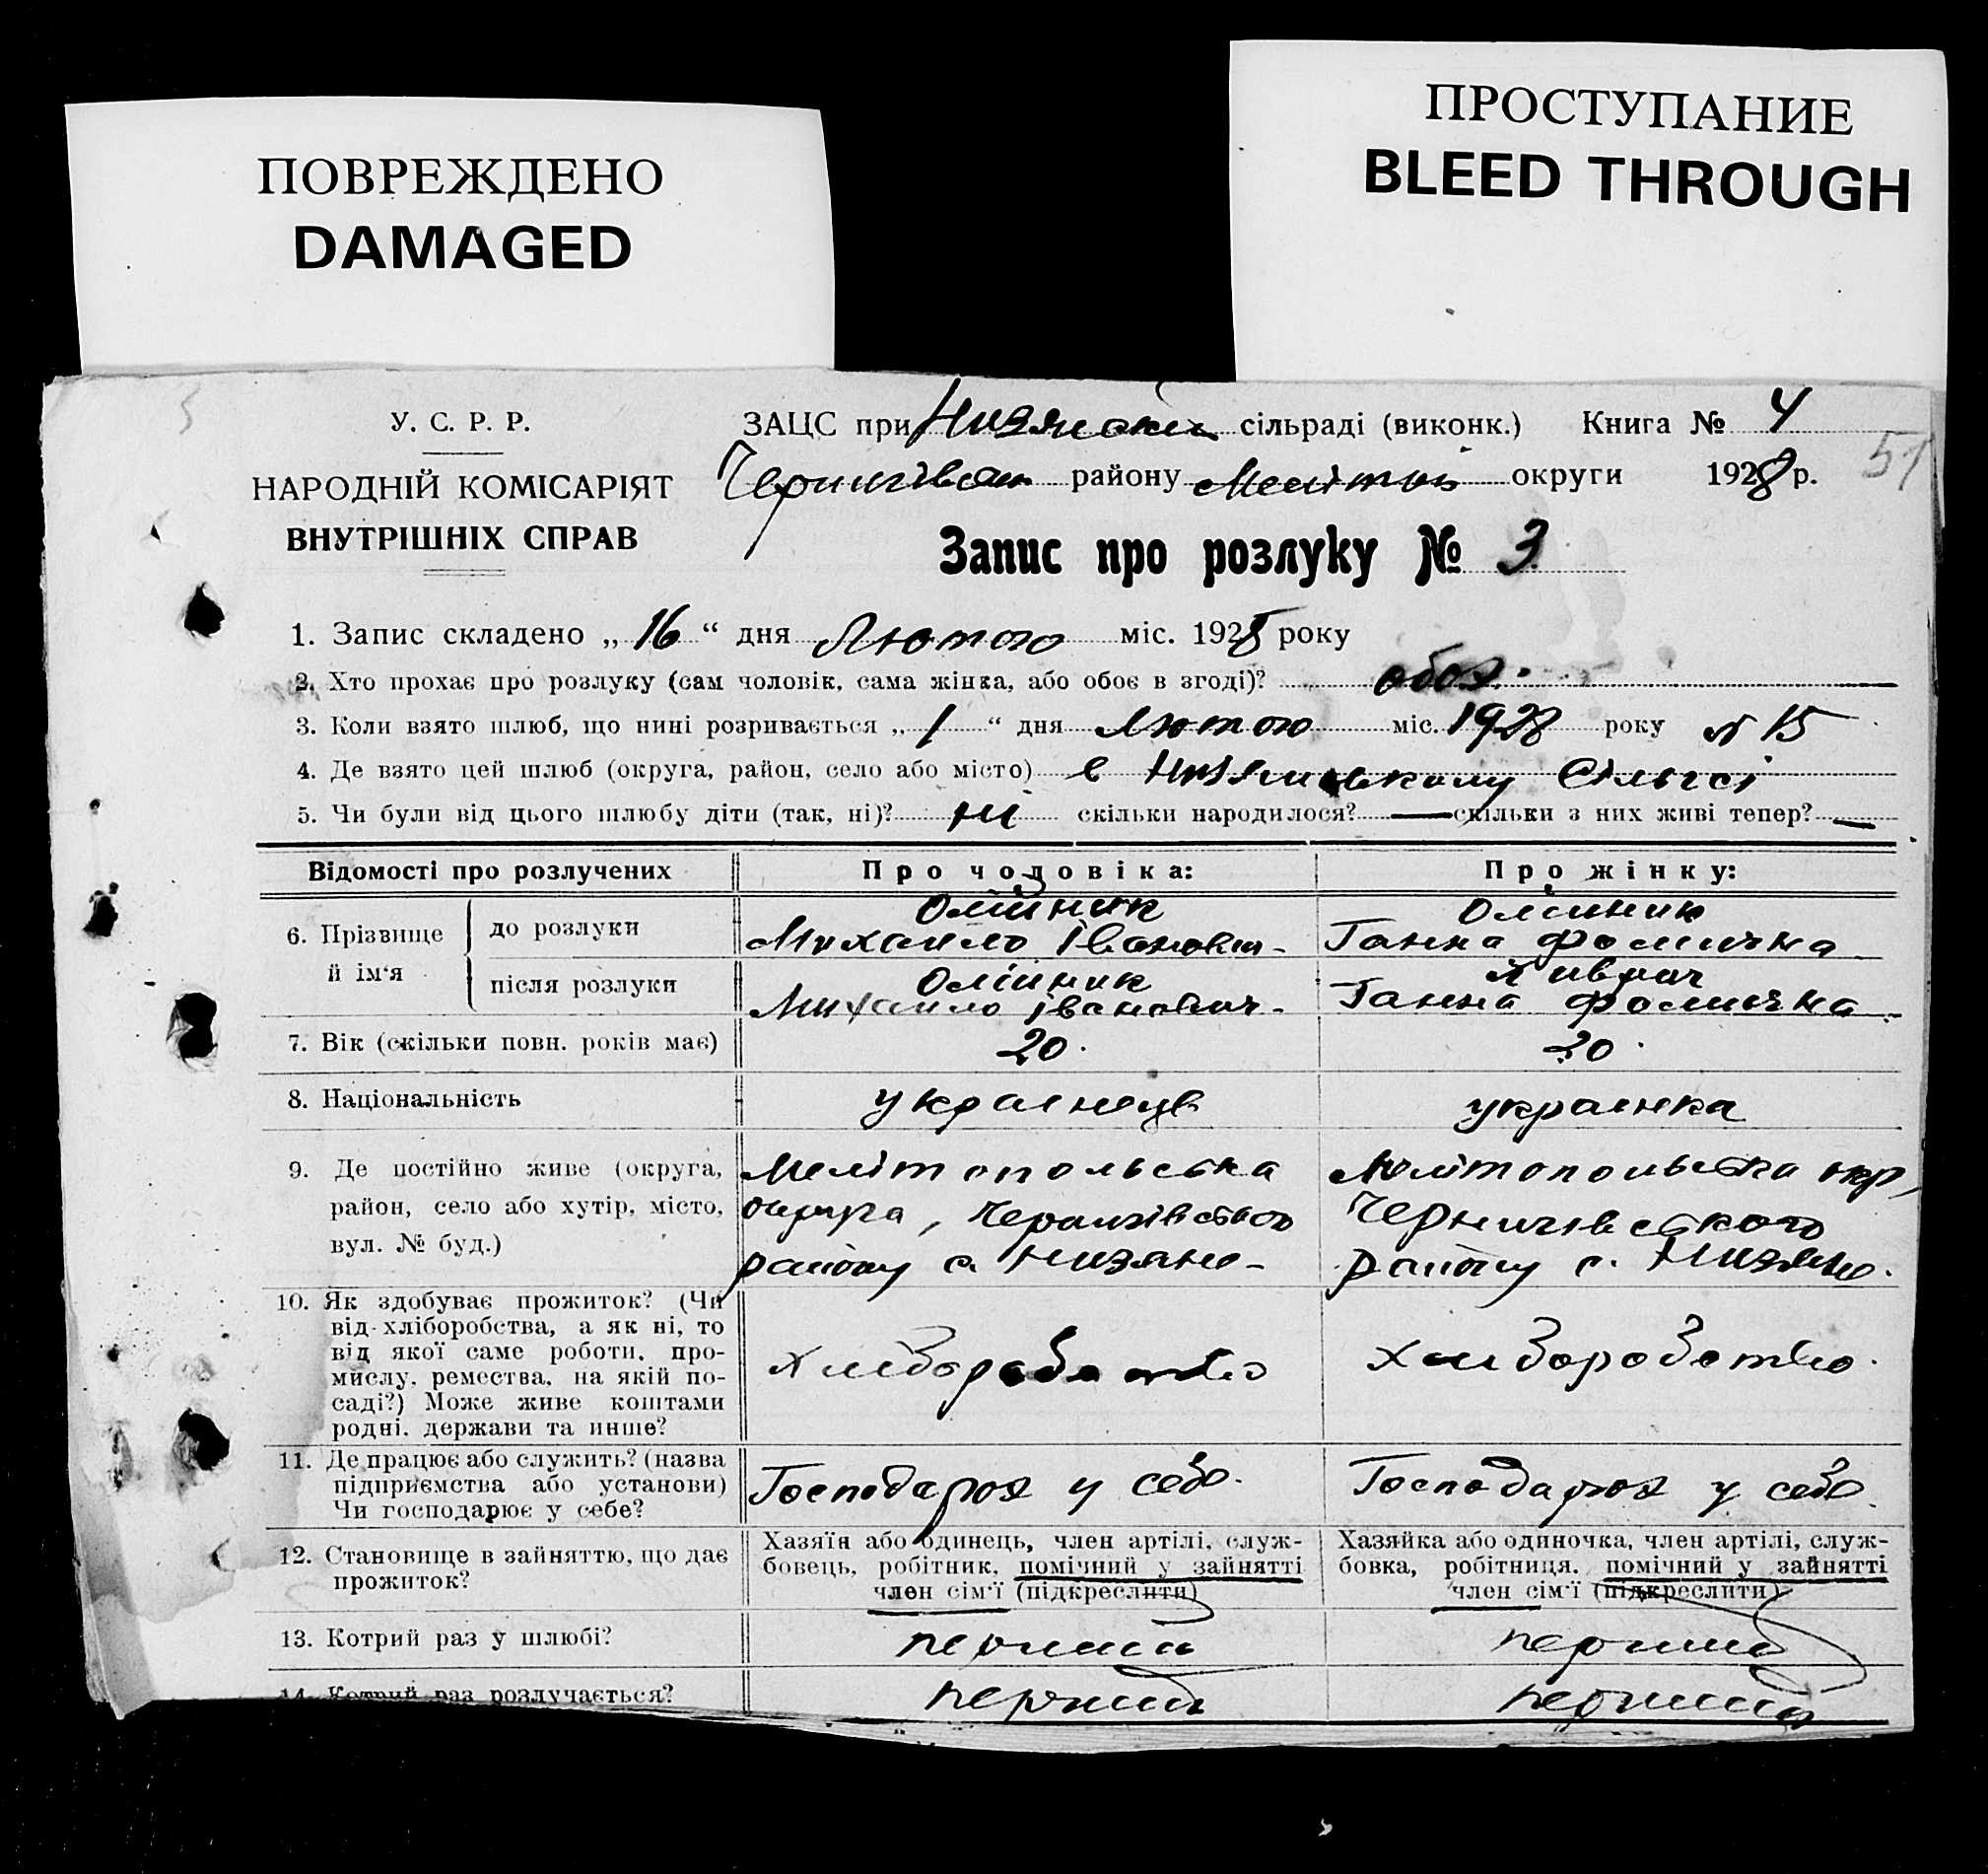 ПОВРЕЖДЕНО
DAMAGED
ПРОСТУПАНИЕ
BLEED THROUGH
У. С. Р. Р.
НАРОДНІЙ КОМІСАРІЯТ
ВНУТРІШНІХ СПРАВ
ЗАЦС при Низянській сільраді (виконк.) Книга № 4
51
району Меліт округи 1928 р.
Запис про розлуку № 3
1. Запис складено „ 16 “ дня Лютого міс. 1928 року
2. Хто прохає про розлуку (сам чоловік, сама жінка, або обоє в згоді)? обоє.
3. Коли взято шлюб, що нині розривається „ 1 “ дня Лютого міс. 1928 року № 15
4. Де взято цей шлюб (округа, район, село або місто) в
5. Чи були від цього шлюбу діти (так, ні)? ні скільки народилося? — скільки з них живі тепер? —
Відомості про розлучених
Про чоловіка:
Про жінку:
6. Прізвище й ім'я
до розлуки
Олійник
Михайло Іванович-
Олійник
Ганна Фомична
після розлуки
Олійник
Михайло Іванович-
Ганна Фомична
7. Вік (скільки повн. років має)
20.
20.
8. Національність
українець
українка
9. Де постійно живе (округа,
район, село або хутір, місто,
вул. № буд.)
Мелітопольська
округа, Чернигівського
району с. Низяне-
Мелітопольська окр,
Чернигівського
району с. Низяне.
10. Як здобуває прожиток? (Чи
від хліборобства, а як ні, то
від якої саме роботи, про-
мислу, ремества, на якій по-
саді?) Може живе коштами
родні, держави та инше?
хліборобство
хліборобство.
11. Де працює або служить? (назва
підприємства або установи)
Чи господарює у себе?
Господарює у себе.
Господарює у себе.
12. Становище в зайняттю, що дає
прожиток?
Хазяїн або одинець, член артілі, служ-
бовець, робітник, помічний у зайнятті
член сім'ї (підкреслити)
Хазяйка або одиночка, член артілі, служ-
бовка, робітниця, помічний у зайнятті
член сім'ї (підкреслити)
13. Котрий раз у шлюбі?
перший
перший
14. Котрий раз розлучається?
перший
перший